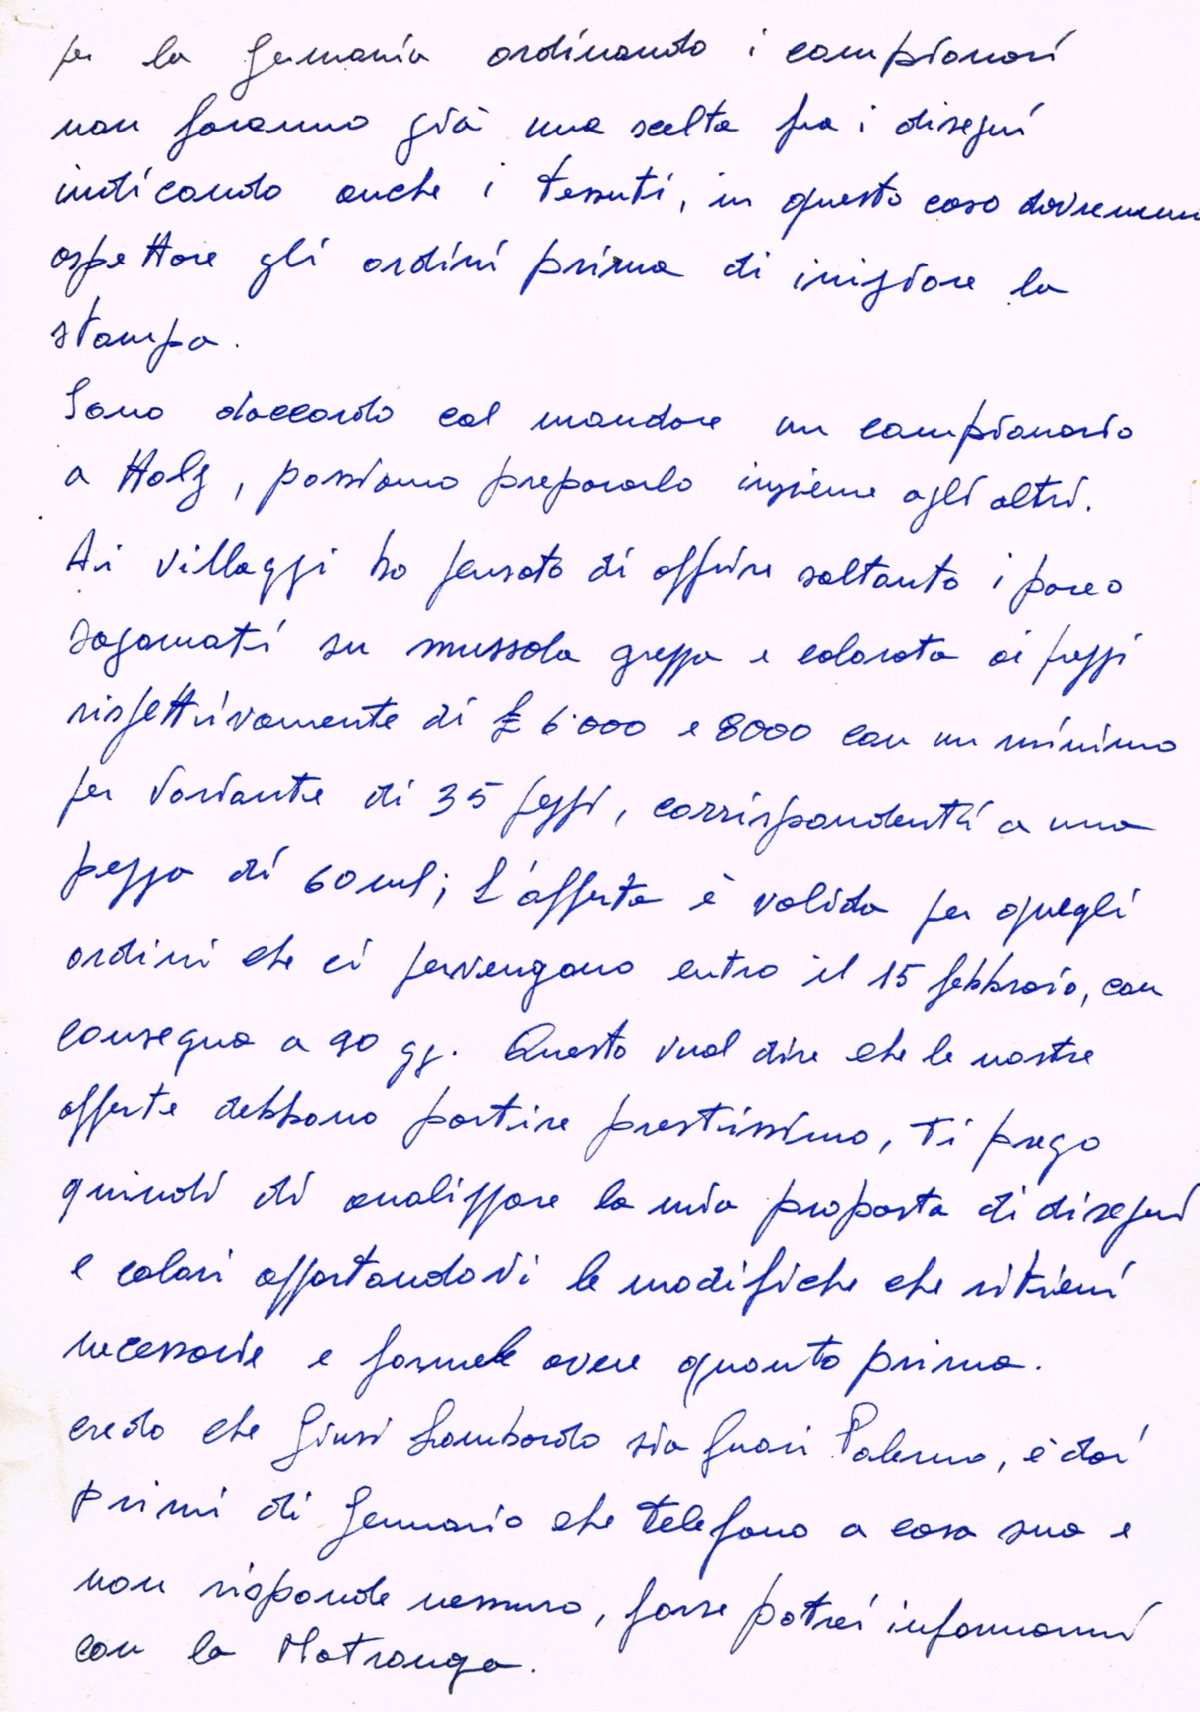 per la Germania ordinando i campionari
non faranno già una scelta fra i disegni
indicando anche i tessuti, in questo caso dovremmo
aspettare gli ordini prima di iniziare la
stampa.
Sono daccordo col mandare un campionario
a Holz, possiamo prepararlo insieme agli altri.
Ai villaggi ho pensato di offrire soltanto i pareo
sagomati su mussola grezza e colorata ai prezzi
rispettivamente di £ 6.000 e 8000 con un minimo
per variante di 35 pezzi, corrispondenti a una
pezza di 60 ml; L'offerta è valida per quegli
ordini che ci pervengono entro il 15 febbraio, con
consegna a 90 gg. Questo vuol dire che le nostre
offerte debbono partire prestissimo, ti prego
quindi di analizzare la mia proposta di disegni
e colori apportandovi le modifiche che ritieni
necessarie e farmele avere quanto prima.
credo che Giusi Lombardo sia fuori Palermo, è dai
primi di Gennaio che telefono a casa sua e
non risponde nessuno, forse potrei informarmi
con la Matranga.